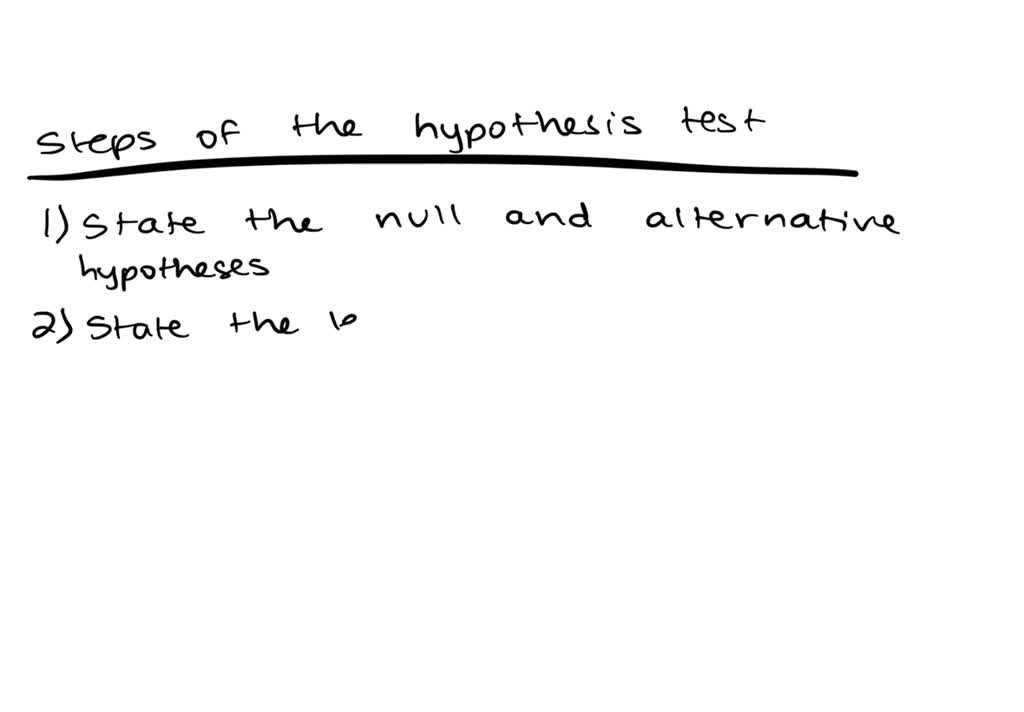 steps of the hypothesis test
1) state the null and alternative
hypotheses
2) state the